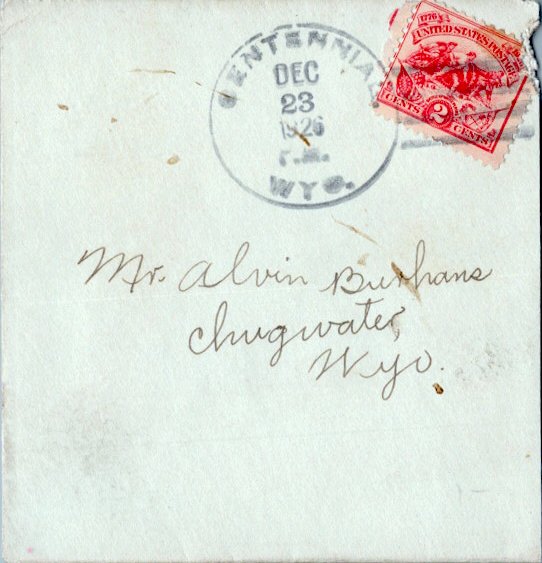 CENTENNIAL
DEC
23
1926
P.M.
WYO.
1776
UNITED STATES POSTAGE
CENTS 2 CENTS
Mr. Alvin Burhans
Chugwater,
Wyo.